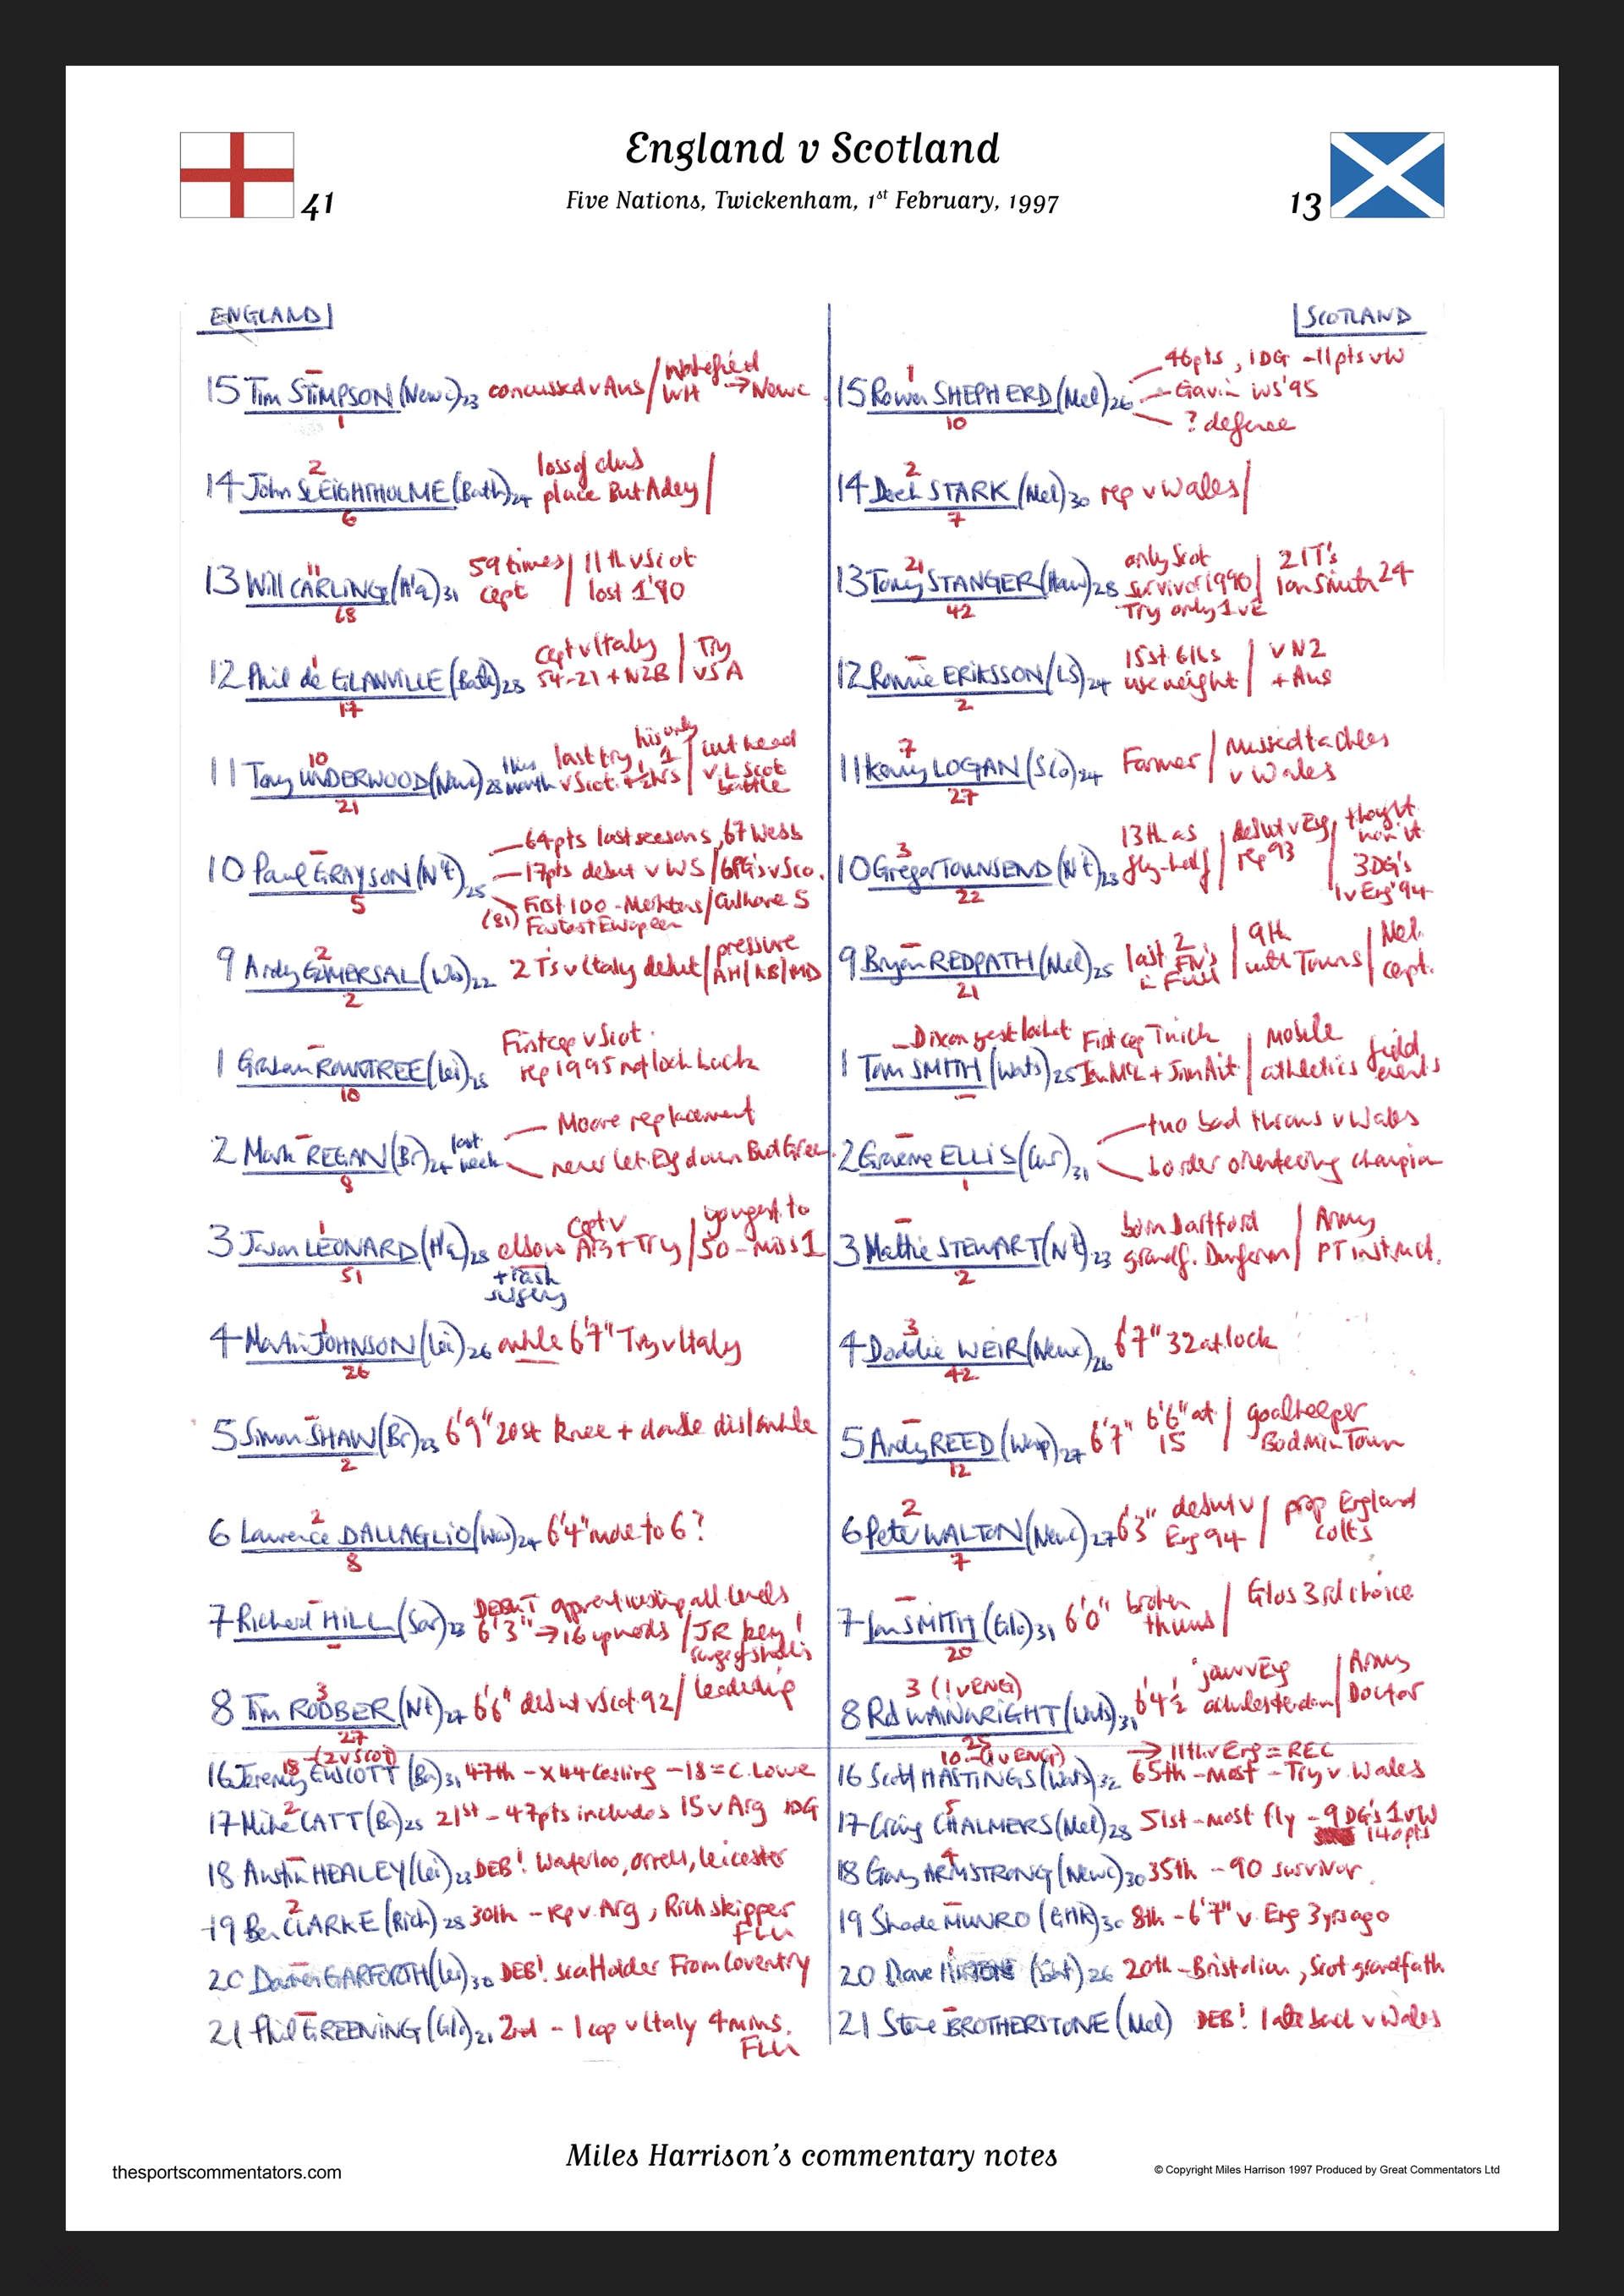 England v Scotland
41
Five Nations, Twickenham, 1st February, 1997
13
ENGLAND
15 Tim STIMPSON (Newc) 23 concussed v Aus / WH → Newc
1
14 John SLEIGHTHOLME (Bath) 24 loss of club place But Adey /
2
6
13 Will CARLING (H'a) 31 59 times capt / 11th v Scot lost 1 '90
11
68
12 Phil de GLANVILLE (Bath) 28 capt v Italy 54-21 + NZB / Try v SA
1
17
11 Tony UNDERWOOD (Newc) 28 this month last try v Scot. his only 1 / cut head v L Scot battle
10
21
10 Paul GRAYSON (N't) 25
— 64pts last season, 67 Webb
— 17pts debut v WS / 6PG's v Sco.
First 100 - Merhtens / Culhane 5
(81) Fastest European
5
9 Andy GOMERSAL (Was) 22 2 T's v Italy debut / pressure AH/KB/MD
2
2
1 Graham ROWNTREE (Lei) 25 First cap v Scot. rep 1995 not look back
10
2 Mark REGAN (Br) 24 last week
— Moore replacement
— never let Eng down But Green
8
3 Jason LEONARD (H'a) 28 elbow capt v + Try / youngest to 50 - miss 1
1
51
surgery
4 Martin JOHNSON (Lei) 26 ankle 6'7" Try v Italy
1
26
5 Simon SHAW (Br) 23 6'9" 20st knee + double dis/ankle
2
6 Lawrence DALLAGLIO (Was) 24 6'4" move to 6?
2
8
7 Richard HILL (Sar) 23 DEBUT all levels
6'3" → 16 upwards / JR key!
8 Tim RODBER (Nt) 27 6'6" debut v Scot 92 / leadership
3
27
16 Jeremy GUSCOTT (Ba) 31 47th - x44 Carling - 18 = C. Lowe
18 - (2 v Scot)
17 Mike CATT (Ba) 25 21st - 47pts includes 15 v Arg 1DG
2
18 Austin HEALEY (Lei) 23 DEB! Waterloo, Orrell, Leicester
19 Ben CLARKE (Rich) 28 30th - Rep v. Arg, Rich skipper
2
FLU
20 Darren GARFORTH (Lei) 30 DEB! scaffolder From Coventry
21 Phil GREENING (Glo) 21 2nd - 1 cap v Italy 4 mins.
FLU
SCOTLAND
15 Rowen SHEPHERD (Mel) 26
1
46pts, 1DG - 11pts v W
Gavin WS '95
? defence
10
14 Derek STARK (Mel) 30 rep v Wales /
2
7
13 Tony STANGER (Haw) 28 only Scot survivor 1990 Try only 1 v E / 21T's Ian Smith 24
21
42
12 Ronnie ERIKSSON (LS) 24 15st 6lbs use weight / v NZ + Aus
2
11 Kenny LOGAN (Sco) 24 Farmer / missed tackles v Wales
7
27
10 Gregor TOWNSEND (N't) 23 13th as fly-half / debut v Eng rep 93 / thought won it 3DG's 1 v Eng '94
3
22
9 Bryan REDPATH (Mel) 25 last 2 FN's in Full / 9th with Towns / Mel. capt.
21
1 Tom SMITH (Wats) 25 First cap Twick + Jim Ait / mobile athletics field events
2 Graeme ELLIS (Cur) 31
— two bad throws v Wales
— border orienteering champion
1
3 Mattie STEWART (N't) 23 born Dartford grandf. Dunferm / Army PT instruct.
2
4 Doddie WEIR (Newc) 26 6'7" 32 at lock
3
42
5 Andy REED (Wasp) 27 6'7" 6'6" at 15 / goalkeeper Bodmin Town
12
6 Peter WALTON (Newc) 27 6'3" debut v Eng 94 / prop England colts
2
7
7 Ian SMITH (Glo) 31 6'0" broken thumb / Glos 3rd choice
20
8 Rob WAINWRIGHT (Wats) 31 6'4½ jaw v Eng / Army Doctor
3 (1 v ENG)
25
16 Scott HASTINGS (Wats) 32 65th - most - Try v. Wales
10 - (1 v ENG) → 11th v Eng = REC
17 Craig CHALMERS (Mel) 28 51st - most fly - 9DG's 1 v W
5
140pts
18 Gary ARMSTRONG (Newc) 30 35th - 90 survivor
4
19 Shade MUNRO (GHK) 30 8th - 6'7" v. Eng 3 yrs ago
20 Dave HILTON (Bat) 26 20th - Bristolian, Scot grandfath
1
21 Steve BROTHERSTONE (Mel) DEB! late back v Wales
Miles Harrison's commentary notes
thesportscommentators.com
© Copyright Miles Harrison 1997 Produced by Great Commentators Ltd